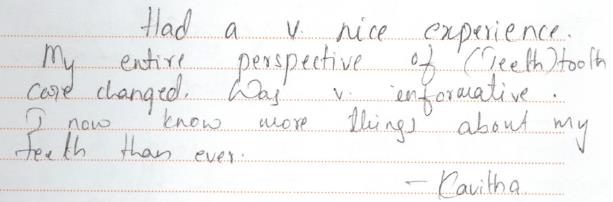 Had a v. nice experience.
My entire perspective of (Teeth) tooth
care changed. Was v. informative.
I now know more things about my
teeth than ever.
- Kavitha